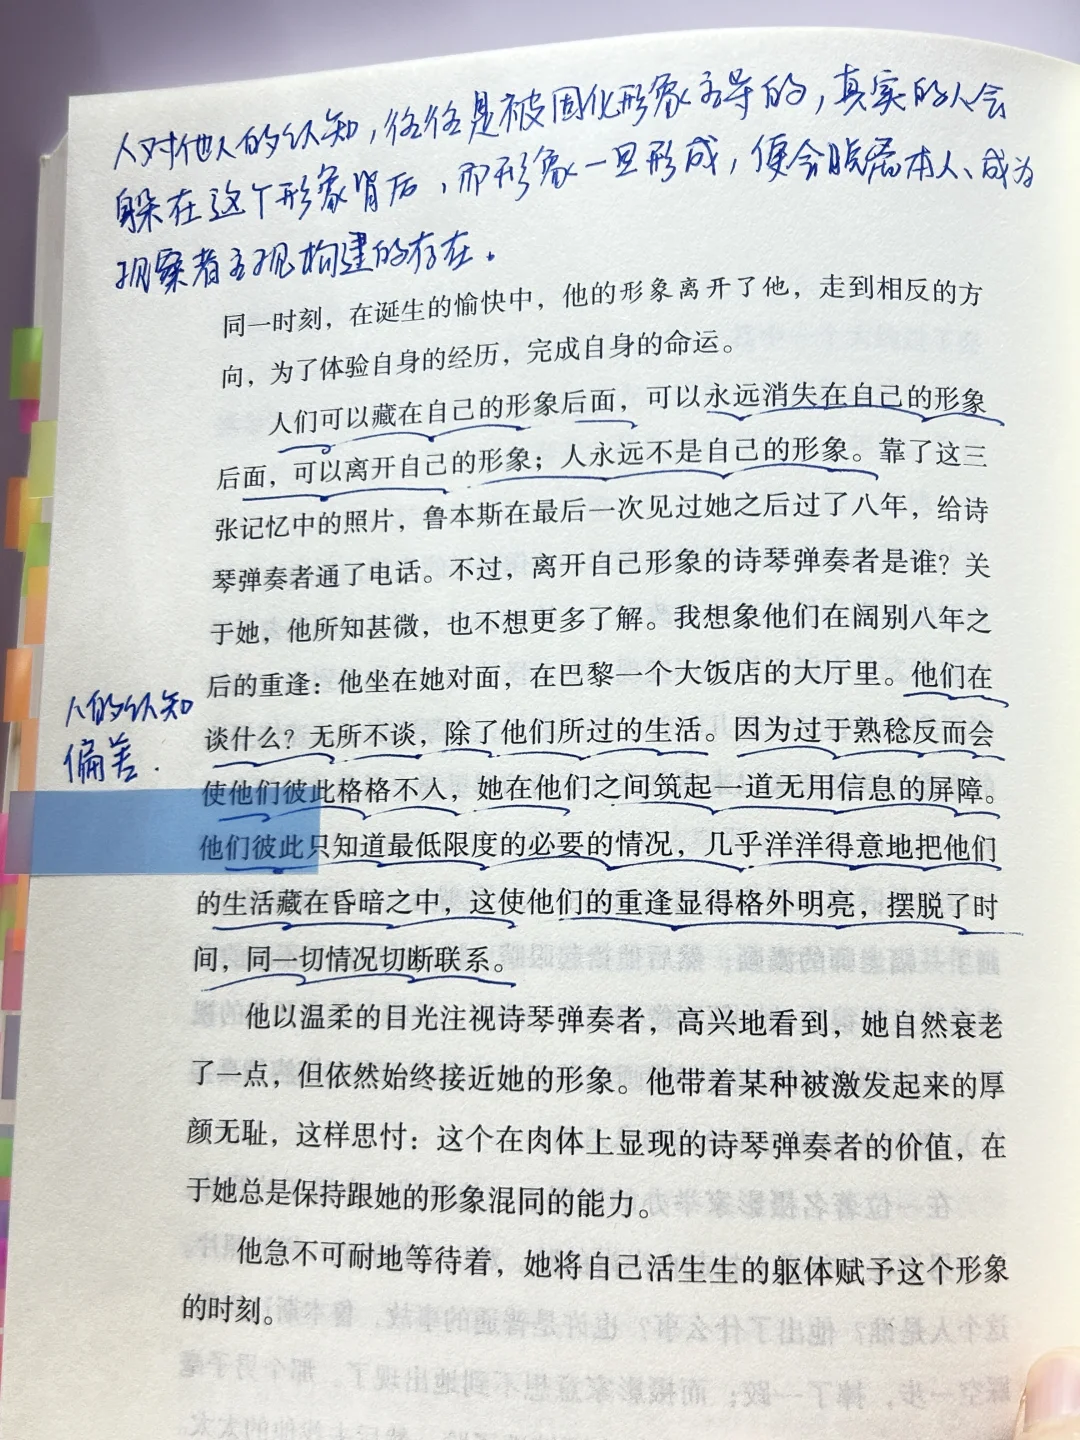 人对他人的认知，往往是被固化形象主导的，真实的人会
躲在这个形象背后，而形象一旦形成，便会脱离本人、成为
观察者主观构建的存在。
同一时刻，在诞生的愉快中，他的形象离开了他，走到相反的方
向，为了体验自身的经历，完成自身的命运。
人们可以藏在自己的形象后面，可以永远消失在自己的形象
后面，可以离开自己的形象；人永远不是自己的形象。靠了这三
张记忆中的照片，鲁本斯在最后一次见过她之后过了八年，给诗
琴弹奏者通了电话。不过，离开自己形象的诗琴弹奏者是谁？关
于她，他所知甚微，也不想更多了解。我想象他们在阔别八年之
后的重逢：他坐在她对面，在巴黎一个大饭店的大厅里。他们在
人的认知
偏差.
谈什么？无所不谈，除了他们所过的生活。因为过于熟稔反而会
使他们彼此格格不入，她在他们之间筑起一道无用信息的屏障。
他们彼此只知道最低限度的必要的情况，几乎洋洋得意地把他们
的生活藏在昏暗之中，这使他们的重逢显得格外明亮，摆脱了时
间，同一切情况切断联系。
他以温柔的目光注视诗琴弹奏者，高兴地看到，她自然衰老
了一点，但依然始终接近她的形象。他带着某种被激发起来的厚
颜无耻，这样思忖：这个在肉体上显现的诗琴弹奏者的价值，在
于她总是保持跟她的形象混同的能力。
他急不可耐地等待着，她将自己活生生的躯体赋予这个形象
的时刻。